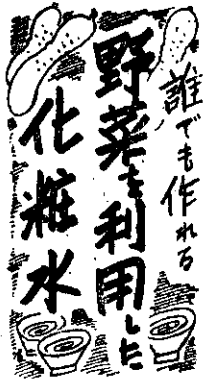 誰でも作れる
野菜を利用した
化粧水